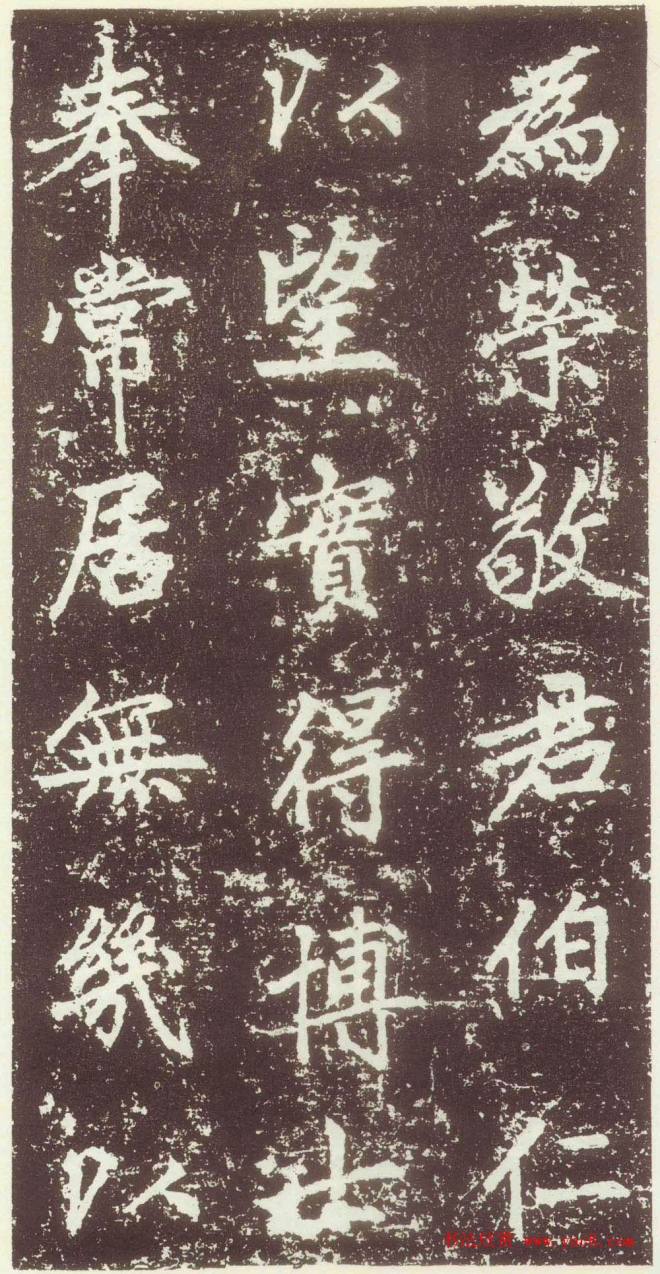 為榮敬君伯仁
以望實得博士
奉常居無幾以